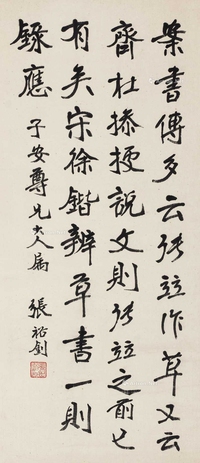 案書傳多云張竝作草又云
齊杜操挍說文則張竝之前已
有矣宋徐鍇辨草書一則
錄應
子安尊兄大人屬 張裕釗